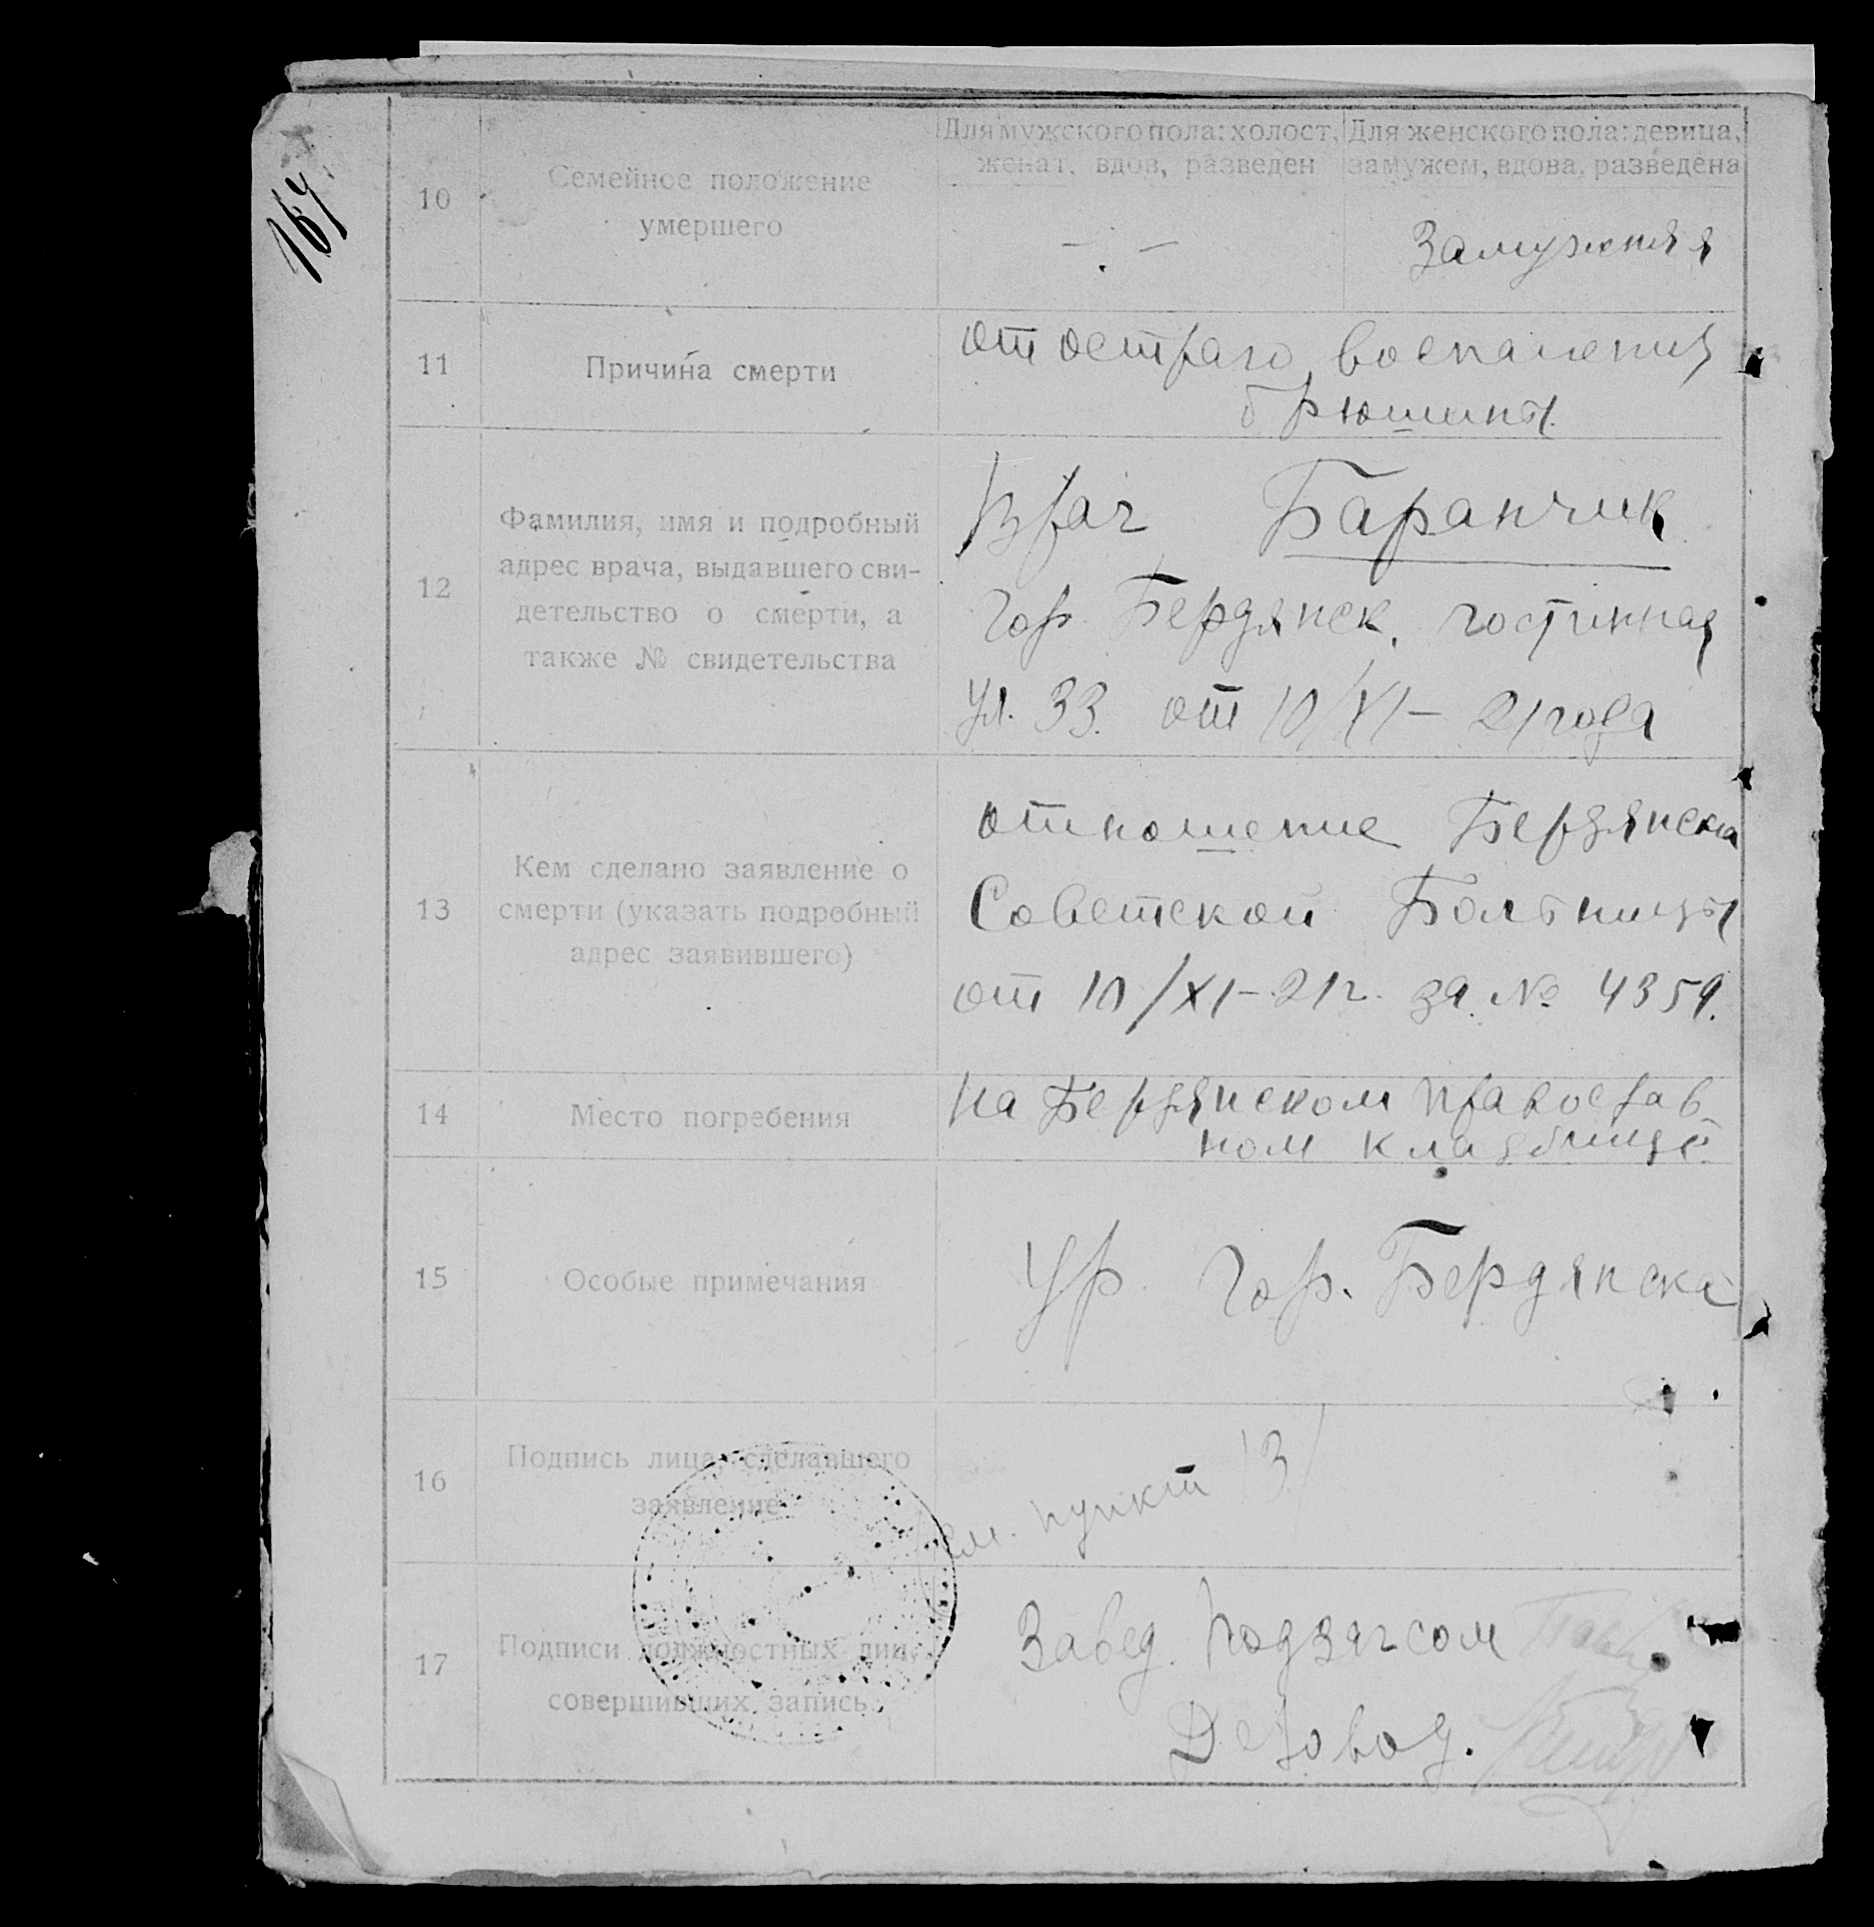 164
10
Семейное положение
умершего
Для мужского пола: холост,
женат, вдов, разведен
Для женского пола: девица,
замужем, вдова, разведена
— . —
Замужняя
11
Причина смерти
от остраго воспаления
брюшины.
12
Фамилия, имя и подробный
адрес врача, выдавшего сви-
детельство о смерти, а
также № свидетельства
Врач Баранчик
Гор. Бердянск, гостинная
ул. 33. от 10/XI – 21 года
13
Кем сделано заявление о
смерти (указать подробный
адрес заявившего)
отношение Бердянской
Советской Больницы
от 10/XI – 21 г. за № 4359.
14
Место погребения
на Бердянском православ-
ном кладбище
15
Особые примечания
Ур. гор. Бердянска
16
Подпись лица, сделавшего
заявление
см. пункт 13
17
Подписи должностных лиц,
совершивших запись
Завед. Подзагсом
Деловод.